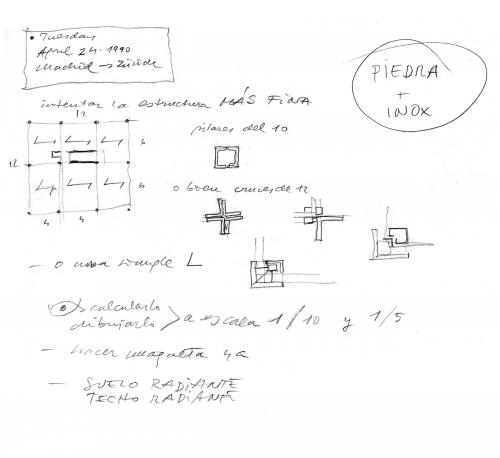 • Tuesday
April 24. 1990
Madrid → Zürich
PIEDRA
+
INOX
intentar la estructura MÁS FINA
12
pilares del 10
12
6
6
4
4
o bien cruces de 12
— o una simple L
• calcularlo
dibujarlo > a escala 1/10 y 1/5
— hacer maqueta ya
— SUELO RADIANTE
TECHO RADIANTE